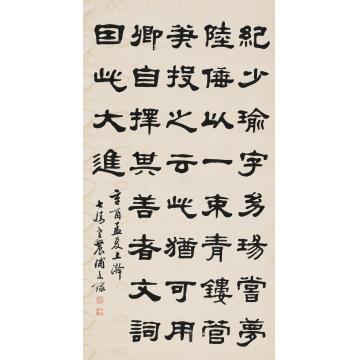 紀少瑜字幼瑒嘗夢
陸倕以一束青鏤管
筆投之云此猶可用
卿自擇其善者文詞
因此大進
辛酉孟夏上澣
農浦文球